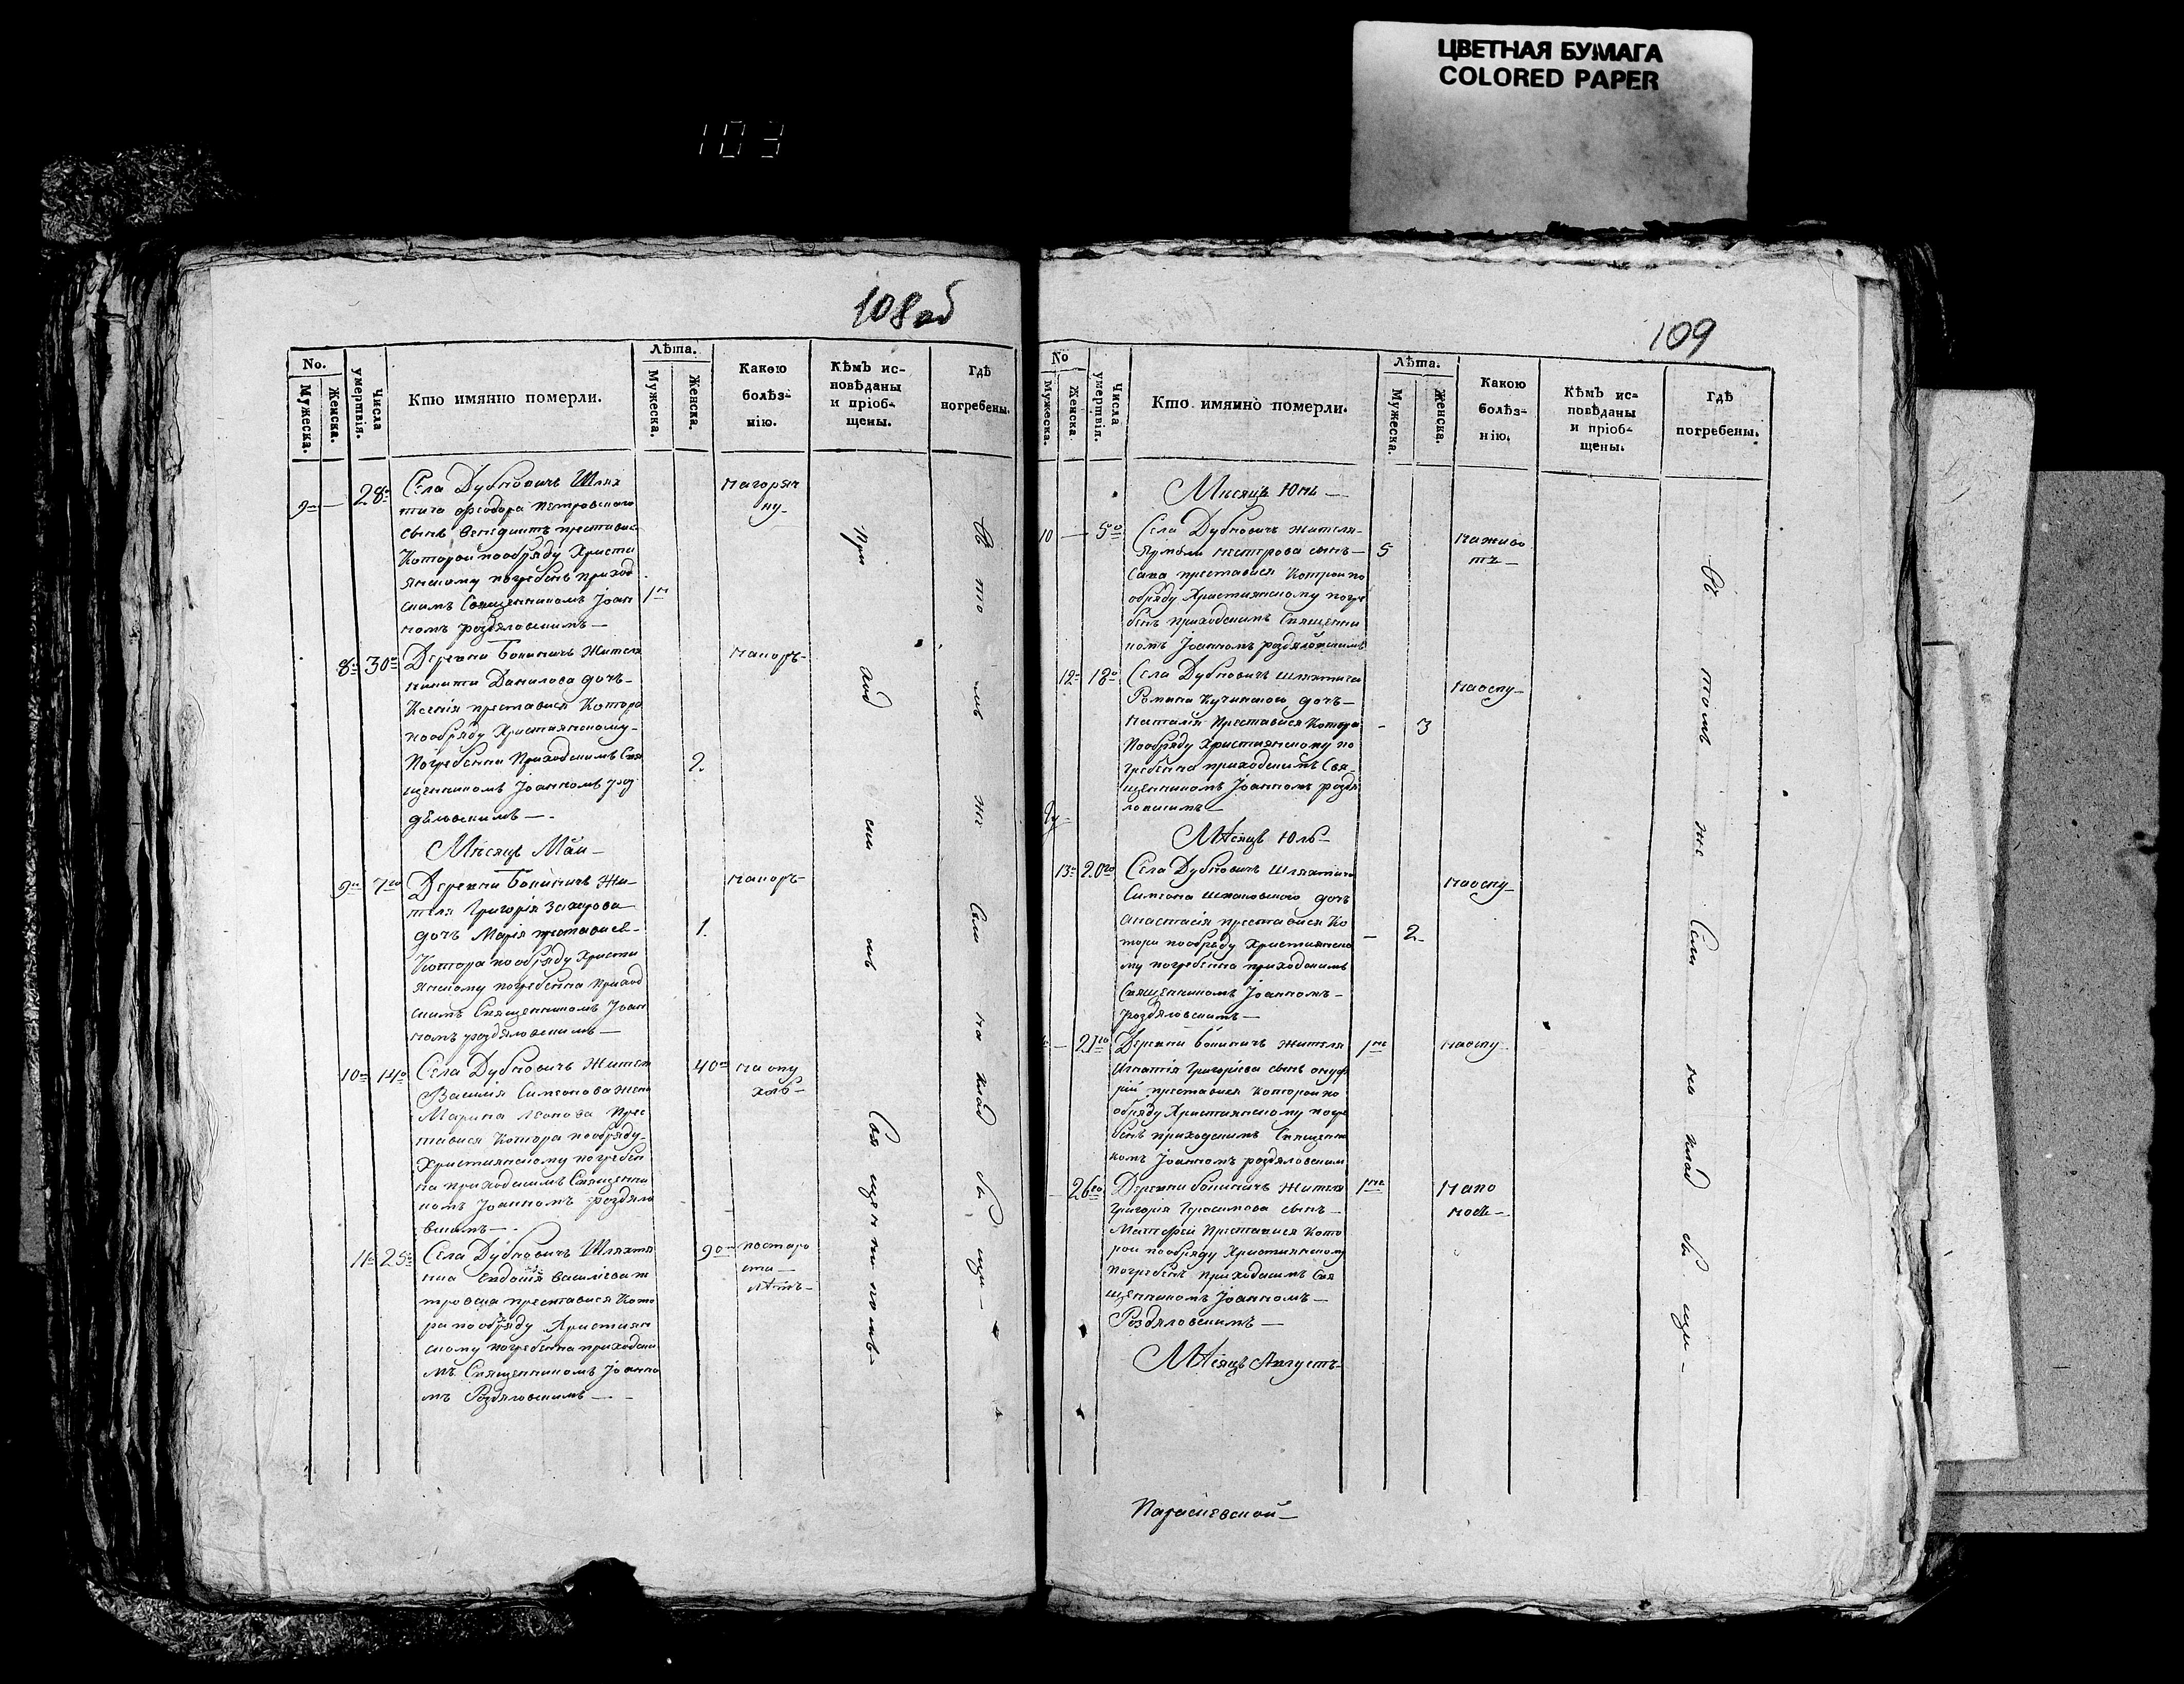 ЦВЕТНАЯ БУМАГА
COLORED PAPER
103
108 об
No.
Мужеска.
Женска.
Числа умертвія.
Кто имянно померли.
Лѣта.
Мужеска.
Женска.
Какою
болѣз-
нію.
Кѣмъ ис-
повѣданы
и пріоб-
щены.
Гдѣ
погребены.
9 — 28
Села Дубновичъ Шлях
тича Феодора Петровского
сынъ преставис
Которой пообряду Христи
янскому погребенъ приход
скимъ Священникомъ Іоан
номъ роздяловскимъ —
1
нагоряч
ку
8 30
Деревни Боничъ Жителя
Никити Данилова дочъ
Ксенія преставися Котора
пообряду Християнскому
Погребенна Приходскимъ Свя
щенникомъ Іоанномъ роз
дѣловскимъ —
2
накоръ
Мѣсяцъ Май —
9 7
Деревни Боничъ Жи-
теля Григорія Захарова
дочъ Марія преставися
Котора пообряду Христи
янскому погребенна Приход
скимъ Священникомъ Іоан
номъ роздяловскимъ —
1
накоръ
10 14
Села Дубновичъ Жителя
Василія Симеонова жена
Марина Леонова Прес
тавися Котора пообряду
Християнскому погребен
на приходскимъ Священни
комъ Іоанномъ роздяло
вскимъ —
40
на опу
холь
11 25
Села Дубновичъ Шляхтя
нка Евдокія Василіева
преставися Кото
ра пообряду Християн
скому погребенна приходски
мъ Священникомъ Іоанно
мъ Роздяловскимъ —
90
постаро
сти
лѣтъ
При ход ским Свя щен ни комъ
Въ том же Селѣ на клад би щи
109
No
Мужеска.
Женска
Числа умертвія.
Кто имянно померли.
Лѣта.
Мужеска.
Женска.
Какою
болѣз-
нію.
Кѣмъ ис-
повѣданы
и пріоб-
щены.
Гдѣ
погребены.
Мѣсяцъ Юнь —
10 — 5
Села Дубновичъ жителя
Ярмоли Нестрова сынъ
Сава преставися Которой по
обряду Християнскому погре
бенъ приходскимъ Священни
комъ Іоанномъ роздяловскимъ
5
наживо
тъ
12 18
Села Дубновичъ шляхтича
Романа Кучинского дочъ
Наталія Преставися Котора
Пообряду Християнскому по
гребенна приходскимъ Свя
щенникомъ Іоанномъ роздя
ловскимъ —
— 3
наоспу
Мѣсяцъ Юль
13 20
Села Дубновичъ Шляхтича
Симеона дочъ
Анастасія преставися Ко
тора пообряду Християнско
му погребенна приходскимъ
Священникомъ Іоанномъ
роздяловскимъ —
— 2
наоспу
— 21
Деревни Боничъ Жителя
Игнатія Григоріева сынъ Онуф
рій преставися Которой по
обряду Християнскому погре
бенъ приходскимъ Священни
комъ Іоанномъ роздяловским
1
наоспу
— 26
Деревни Боничъ Жителя
Григорія Герасимова сынъ
Матфей Преставися Кото
рой пообряду Християнскому
погребенъ приходскимъ Свя
щенникомъ Іоанномъ
Роздяловскимъ —
1
напо
носъ
Мѣсяцъ Августъ
Въ томъ же Селѣ на клад би щи
Параскевской